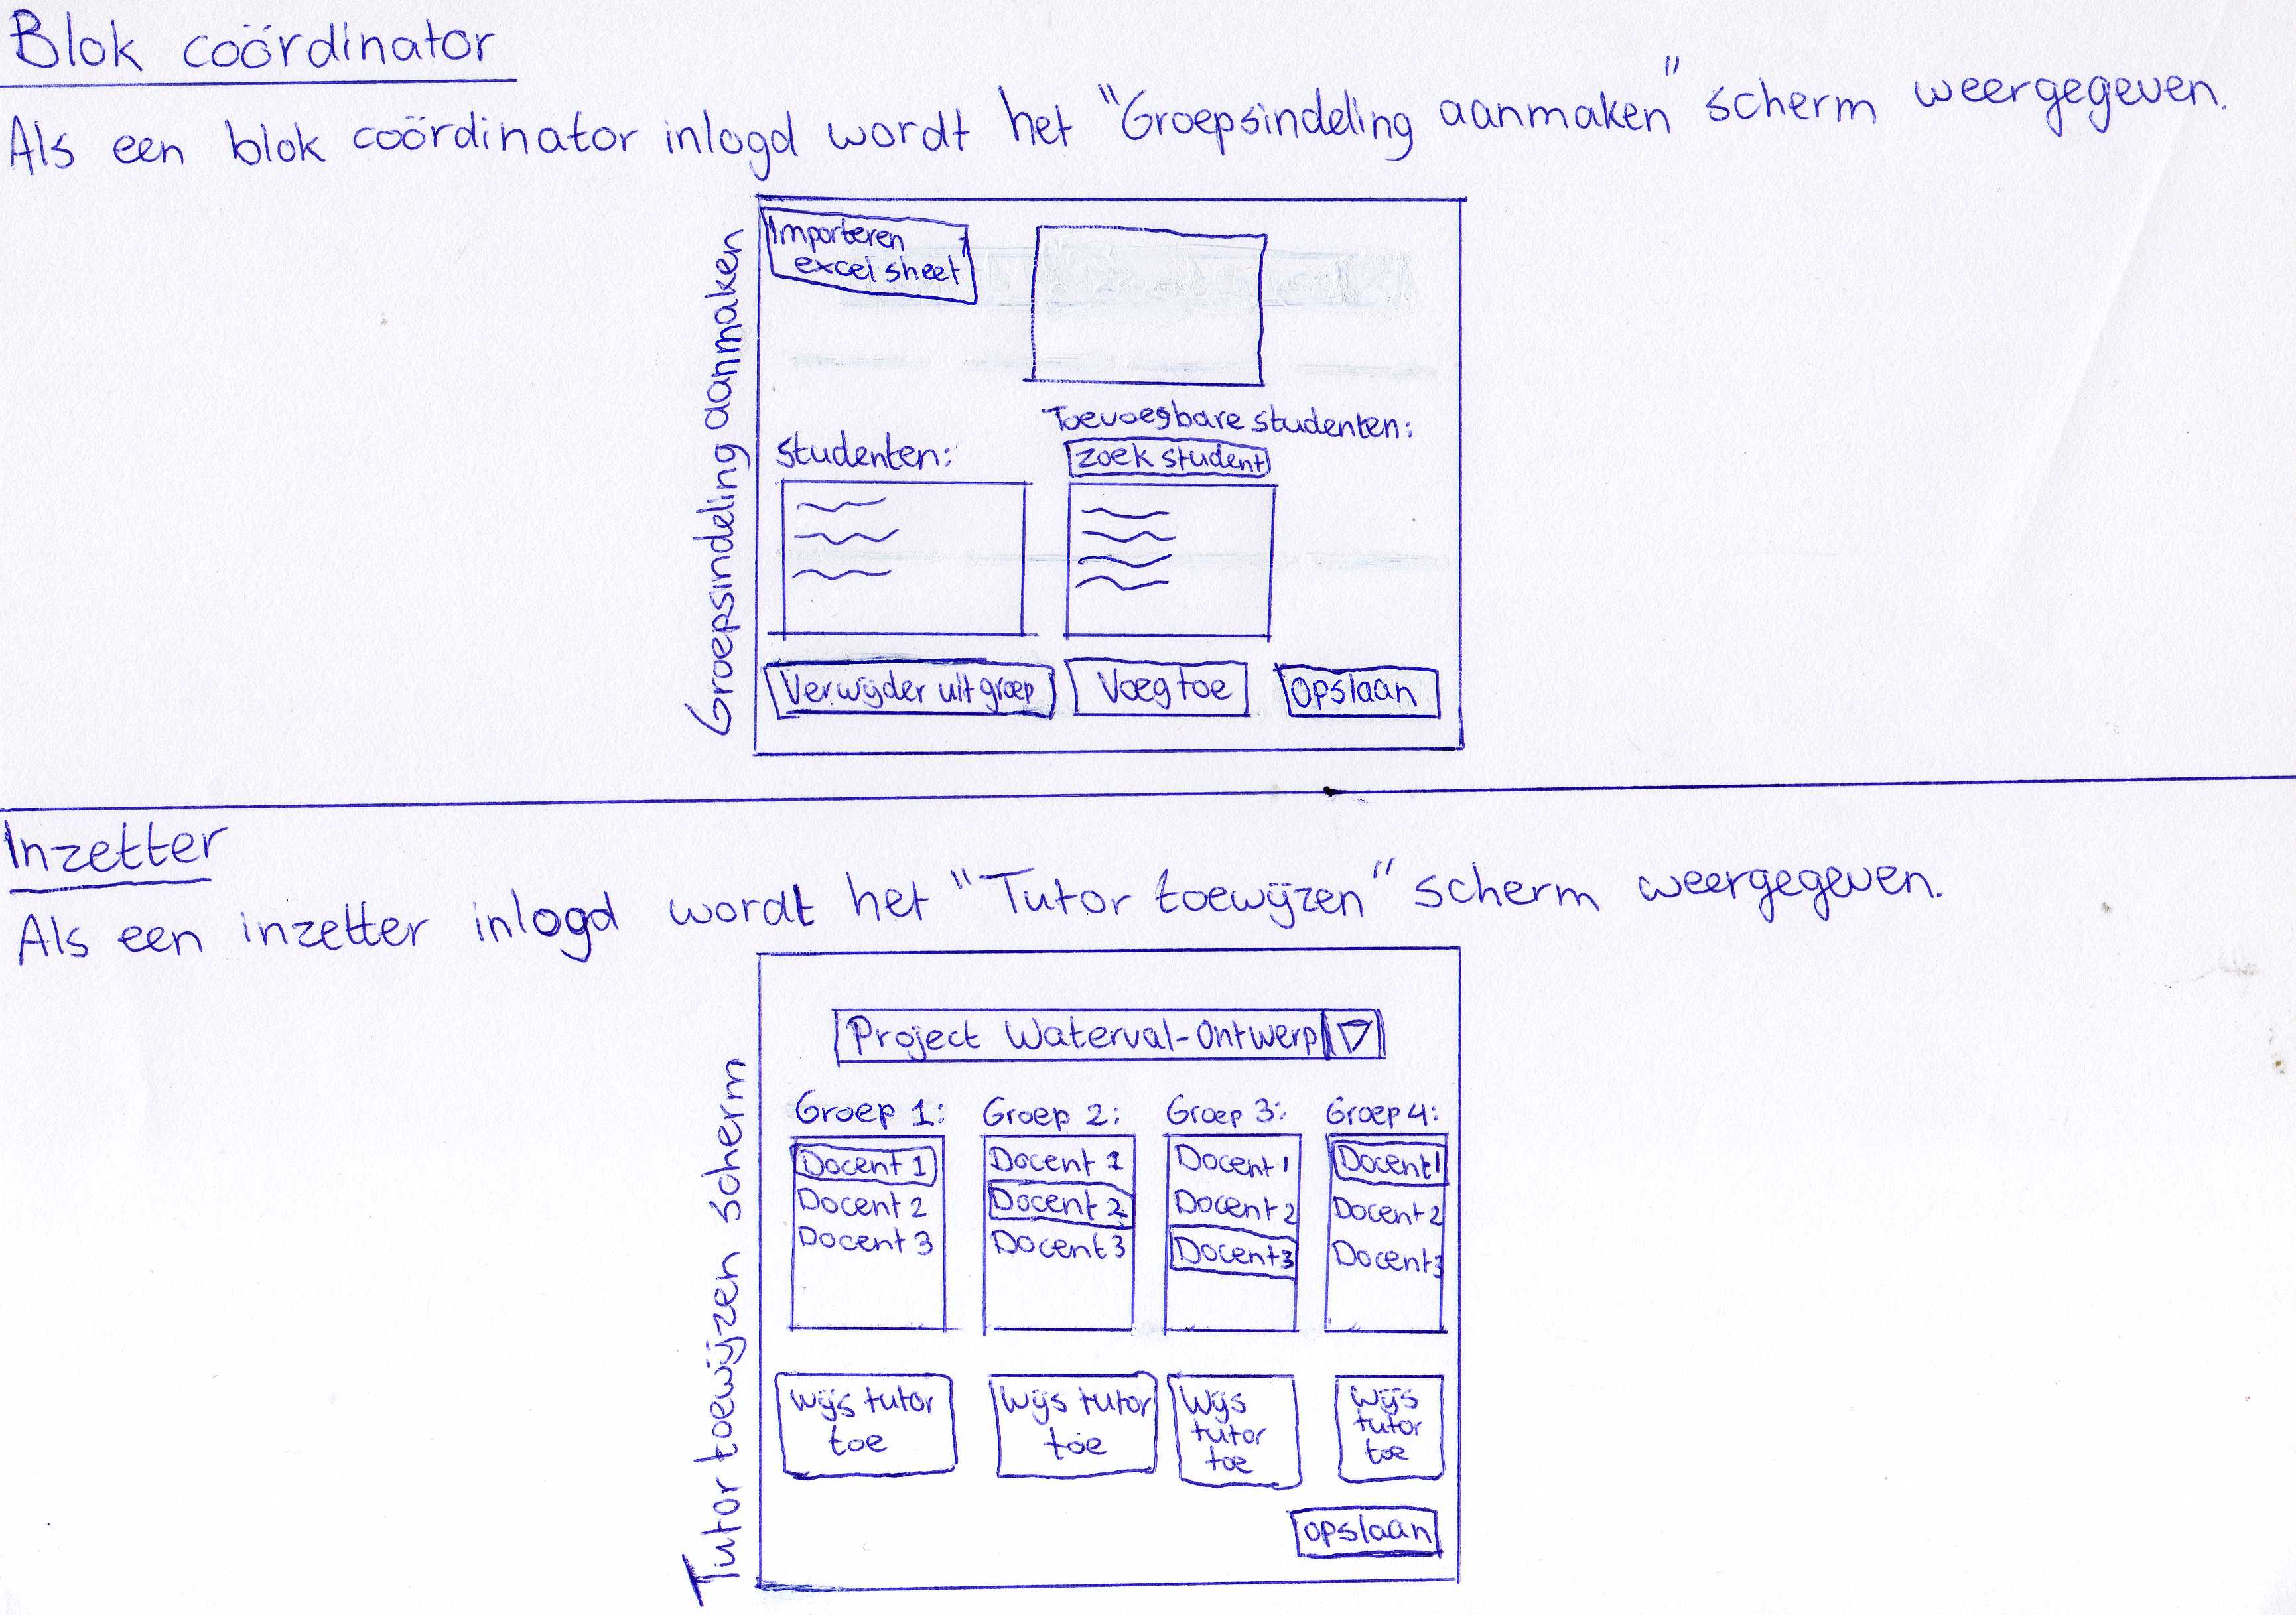 Blok coördinator
Als een blok coördinator inlogd wordt het "Groepsindeling aanmaken" scherm weergegeven.
Groepsindeling aanmaken
Importeren
excel sheet
Toevoegbare studenten:
Studenten:
zoek student
Verwijder uit groep
Voeg toe
Opslaan
Inzetter
Als een inzetter inlogd wordt het "Tutor toewijzen" scherm weergegeven.
Tutor toewijzen scherm
Project Waterval-Ontwerp
Groep 1: Groep 2: Groep 3: Groep 4:
Docent 1 Docent 1 Docent 1 Docent 1
Docent 2 Docent 2 Docent 2 Docent 2
Docent 3 Docent 3 Docent 3 Docent 3
Wijs tutor
toe
Wijs tutor
toe
Wijs
tutor
toe
Wijs
tutor
toe
opslaan